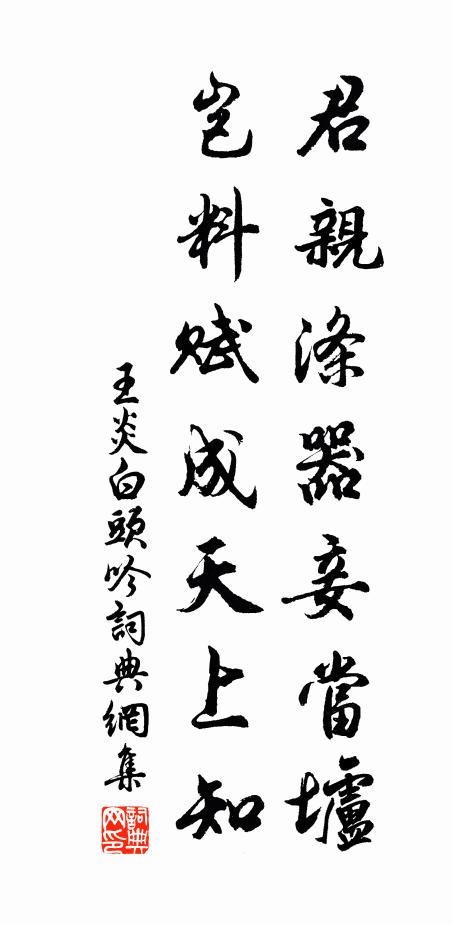 君親滌器妾當壚
豈料賦成天上知
王炎白頭吟詞典網集
詞典
网印